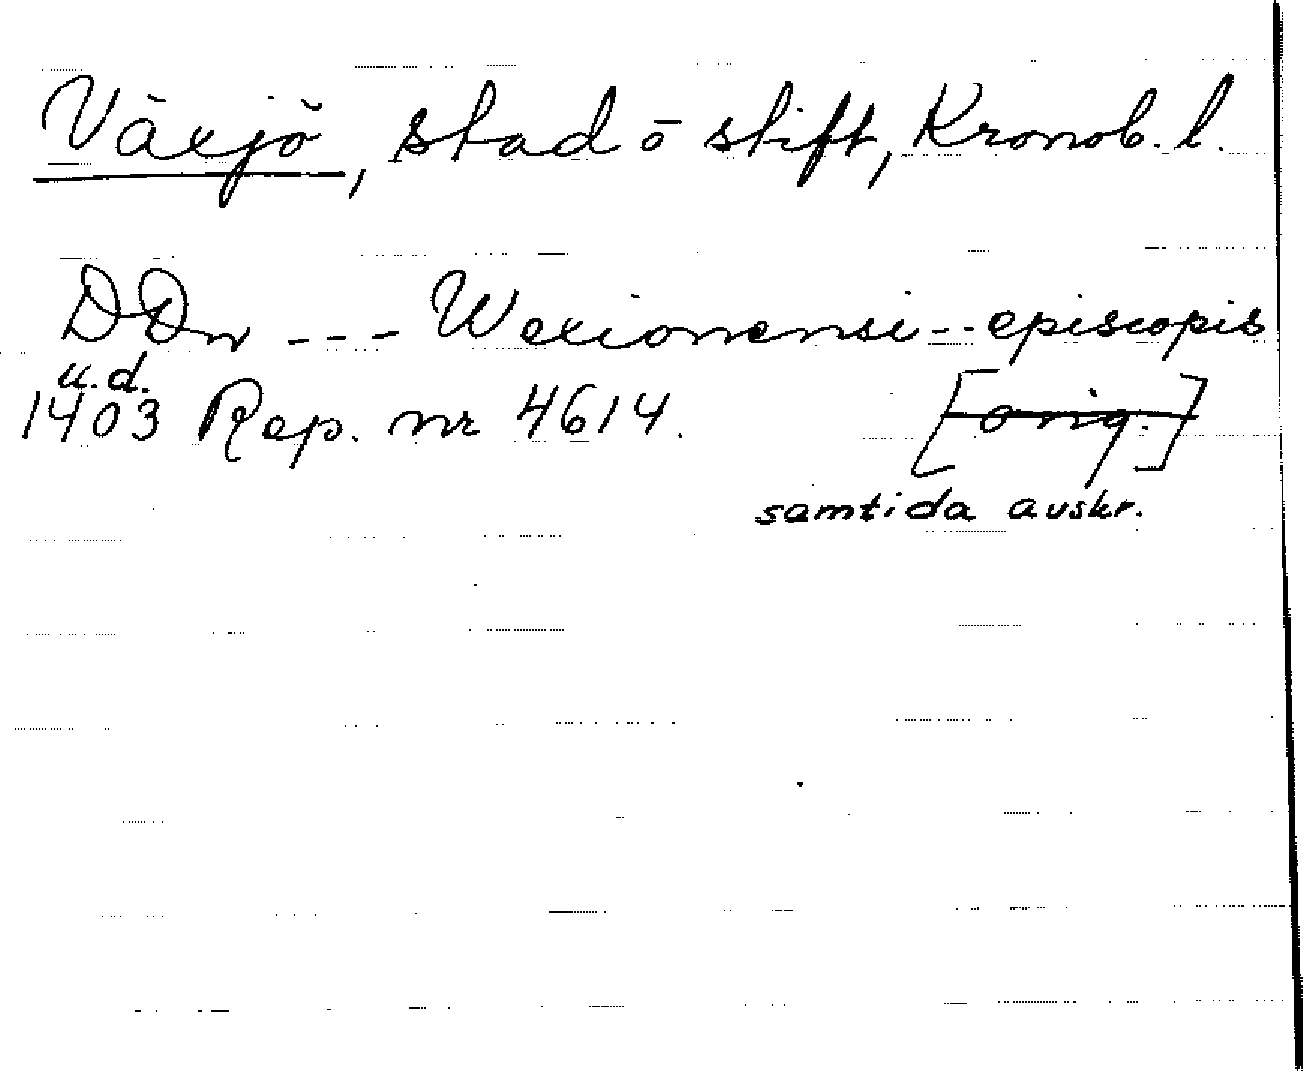 Växjö, stad ō stift, Kronob. l.
DDn --- Wexionensi -- episcopis
u.d.
1403 Rep. nr 4614. [orig.]
samtida avskr.